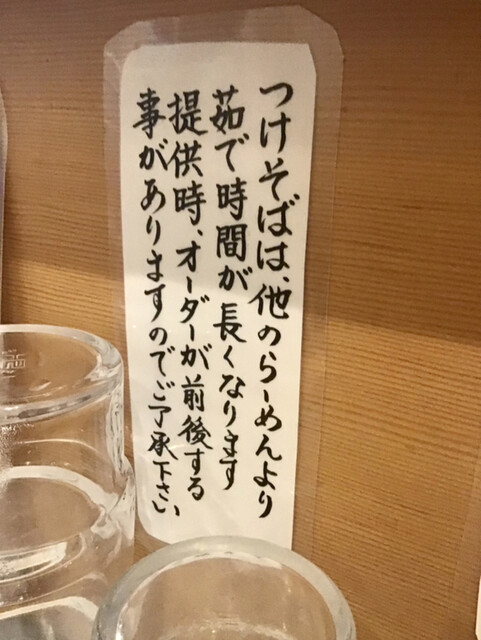 つけそばは、他のらーめんより
茹で時間が長くなります
提供時、オーダーが前後する
事がありますのでご了承下さい